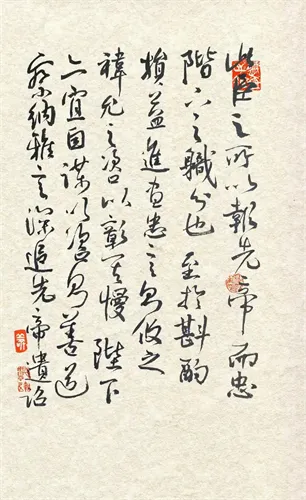 此臣之所以報先帝而忠
陛下之職分也 至於斟酌
損益進盡忠言則攸之
禕允之咎以彰其慢 陛下
亦宜自謀以咨諏善道
察納雅言深追先帝遺詔